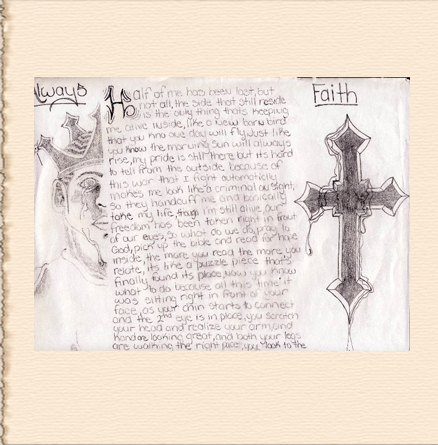 Always
Faith
Half of me has been lost, but
not all, the side that still reside
is the only thing thats keeping
me alive inside, like a new born bird
that you kno one day will fly, just like
you know the morning sun will always
rise, my pride is still there but its hard
to tell from the outside because of
this war that I fight automaticlly
makes me look like a criminal on sight,
so they handcuff me and basically
take my life, though im still alive our
freedom has been taken right in front
of our eyes, so what do we do, pray to
God, pick up the bible and read for hope
inside, the more you read the more you
relate, its like a puzzle piece that's
finally found its place, now you know
what to do because all this time it
was sitting right in front of your
face, as your chin starts to connect
and the 2nd eye is in place, you scratch
your head and realize your arm, and
hand are looking great, and both your legs
are walking the right pace, you look to the